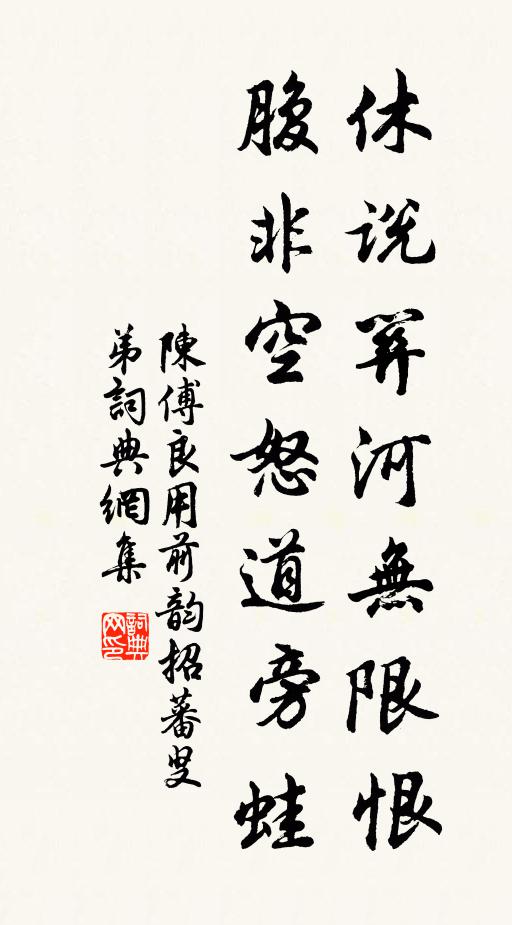 休説關河無限恨
腹非空怒道旁蛙
陳傅良用前韵招蕃叟
弟詞典網集
詞典网印